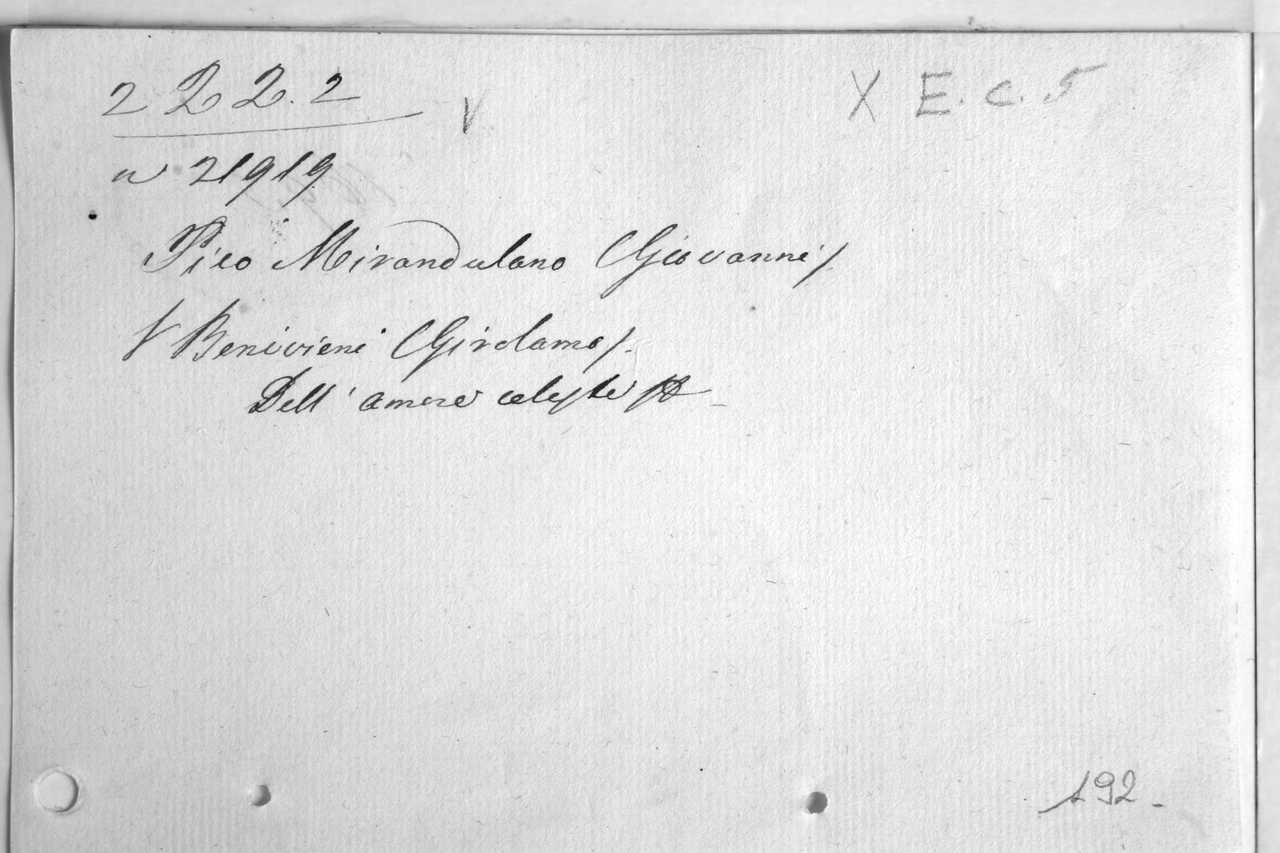 2 2 2. 2
V
X E. C. 5
n 21919
Pico Mirandulano (Giovanni)
V Benivieni (Girolamo).
Dell' amore celeste
192.